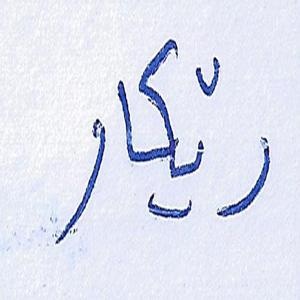 رێکار